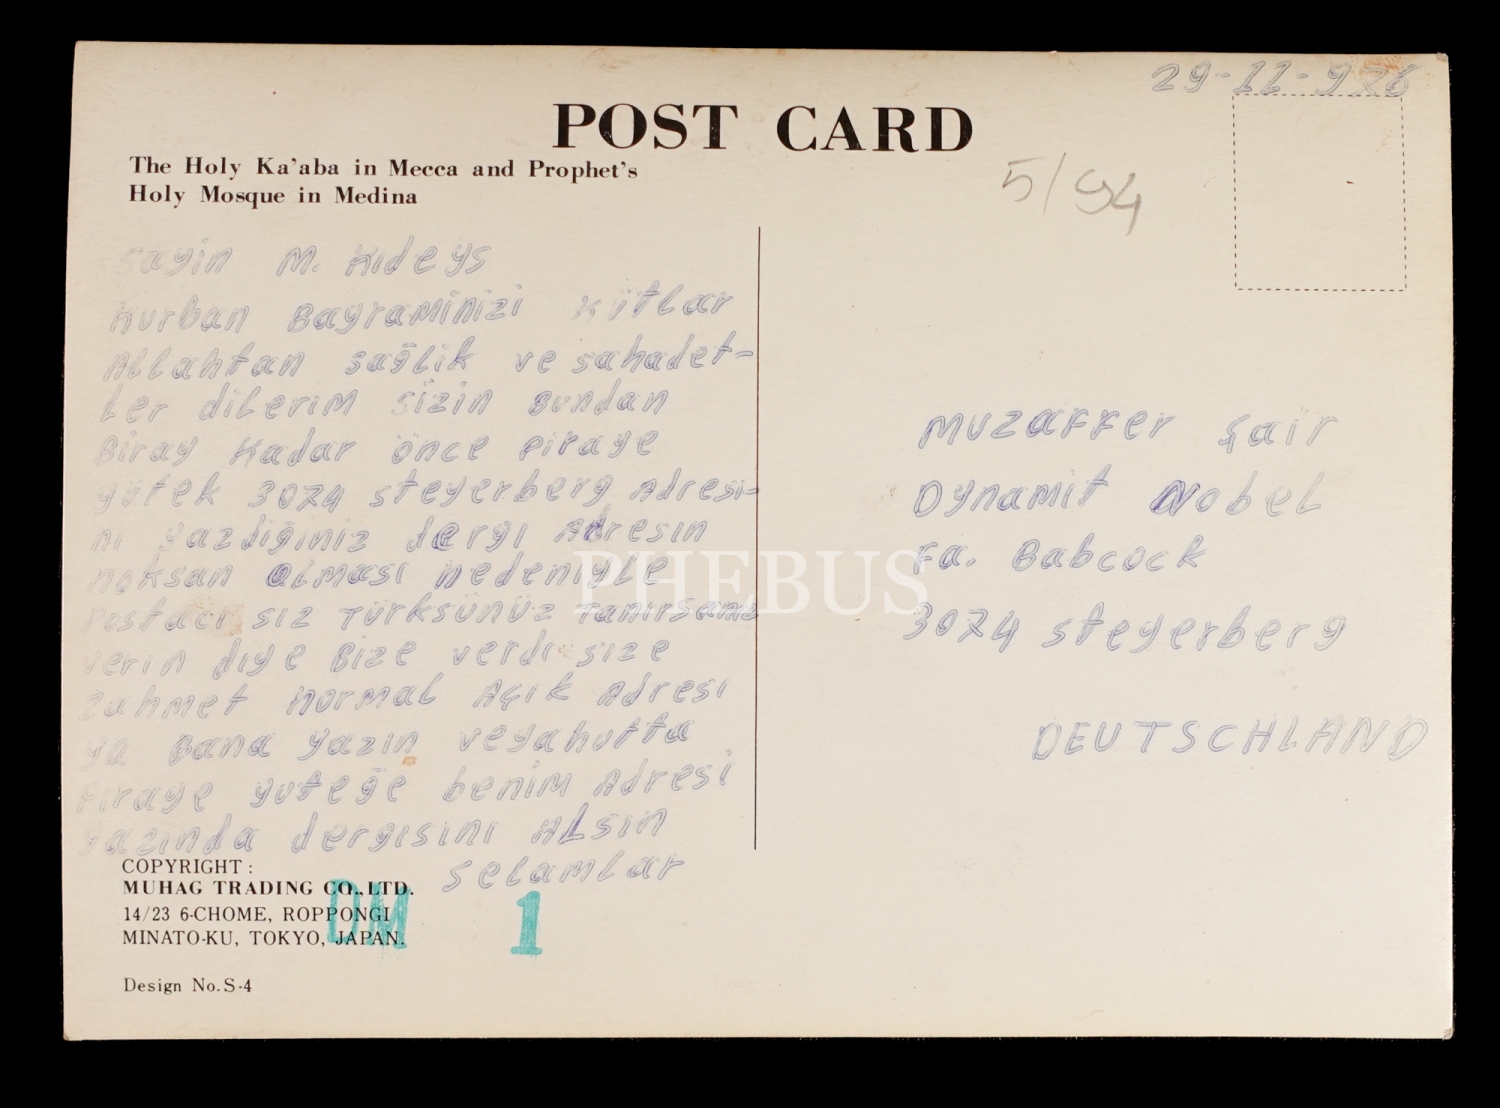 29-11-976
POST CARD
The Holy Ka'aba in Mecca and Prophet's
Holy Mosque in Medina
5/94
sayin M. Kıdeys
Kurban BayraMinizi Kütlar
Allahtan sağlik ve sahadet-
ler dilerim sizin Bundan
Biray Kadar önce Piraye
yütek 3074 steyerberg Adresi-
ni yazdiğiniz dergi Adresin
noksan olması nedeniyle
Postacı siz Türksünüz Tanırsanız
verin diye Bize verdi size
Zahmet normal Açık Adresi
ya Bana yazın veyahutta
Piraye yuteğe benim Adresi
yazında dergisini Alsın
selamlar
Muzaffer şair
Dynamit Nobel
Fa. Babcock
3074 steyerberg
DEUTSCHLAND
PHEBUS
COPYRIGHT :
MUHAG TRADING CO., LTD.
14/23 6-CHOME, ROPPONGI
MINATO-KU, TOKYO, JAPAN.
DM 1
Design No. S-4